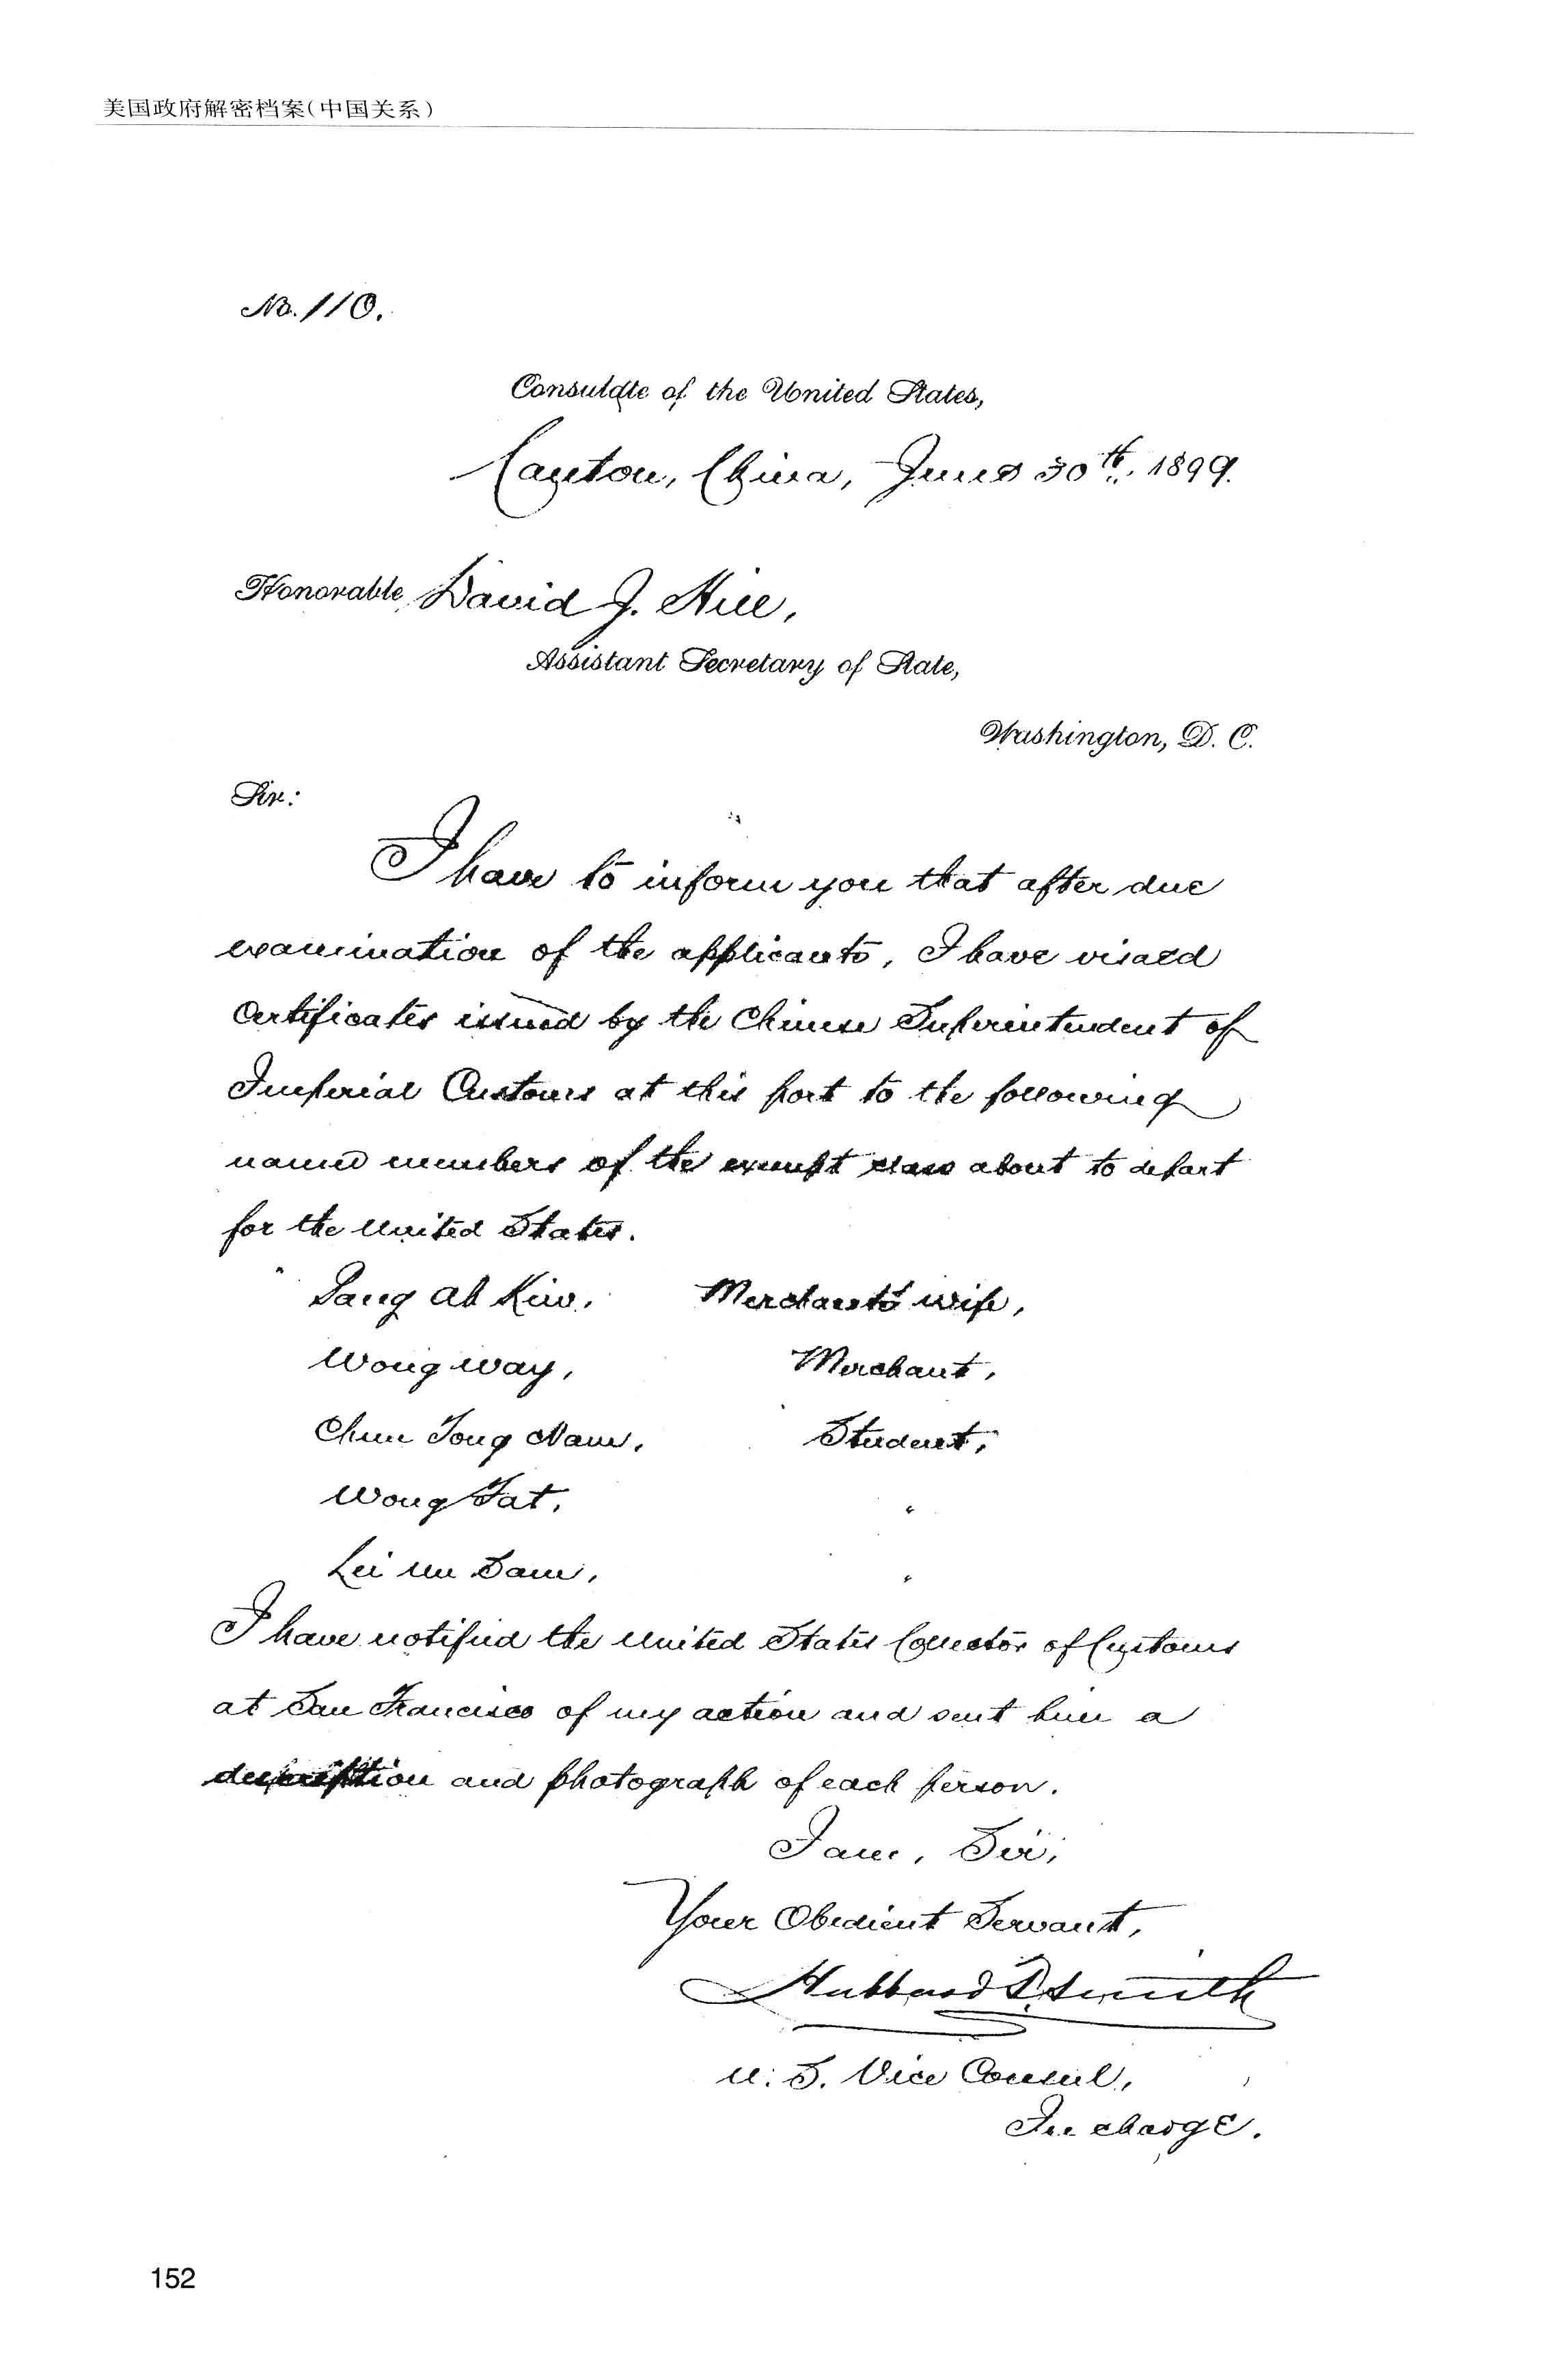 美国政府解密档案(中国关系)
No. 110.
Consulate of the United States,
Canton, China, June 30th, 1899.
Honorable David J. Hill,
Assistant Secretary of State,
Washington, D. C.
Sir:
I have to inform you that after due
examination of the applicants, I have visaed
certificates issued by the Chinese Superintendent of
Imperial Customs at this port to the following
named members of the exempt class about to depart
for the United States.
Pang Ah Kiw, Merchant's wife,
Wong Way, Merchant,
Chun Tong Nam, Student,
Wong Fat, "
Lei Un Sam, "
I have notified the United States Collector of Customs
at San Francisco of my action and sent him a
description and photograph of each person.
I am, Sir,
Your Obedient Servant,
Hubbard T. Smith
U. S. Vice Consul,
In charge.
152